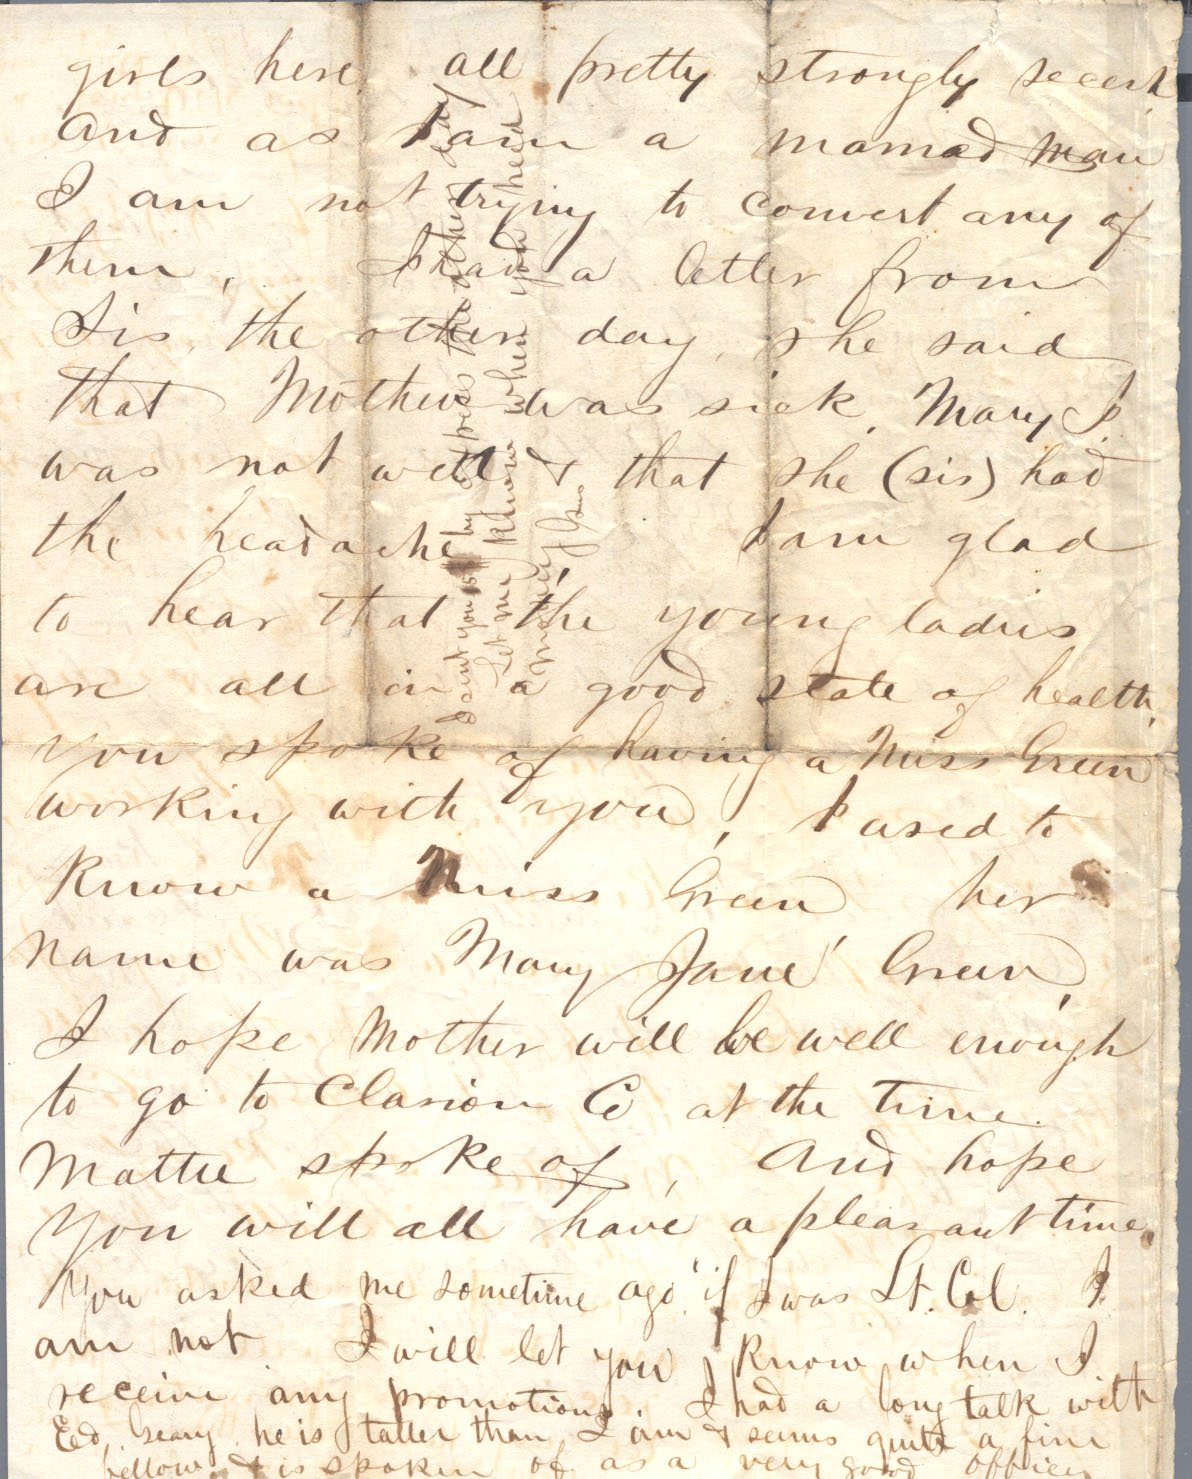 girls here, all pretty strongly secesh,
and as I am a married man
I am not trying to convert any of
them, I had a letter from
Sis, the other day, she said
that Mother was sick, Mary J.
was not well & that she (sis) had
the headache, I am glad
to hear that the young ladies
are all in a good state of health,
You spoke of having a Miss Green
working with you, I used to
Know a Miss Green her
name was Mary Jane Green,
I hope Mother will be well enough
to go to Clarion Co at the time
Mattie spoke of, And hope
You will all have a pleasant time,
You asked me sometime ago if I was Lt. Col. I
am not I will let you know when I
receive any promotions. I had a long talk with
Ed, Geary, he is taller than I am & seems quite a fine
fellow, & is spoken of as a very good officer
I sent you 15 by express the other day
Let me Know when you
Money Yours